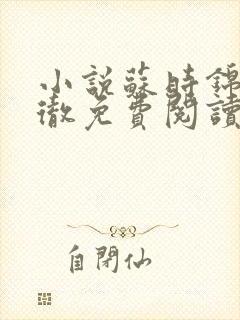 小說蘇時錦
徹免費閱讀
自閉仙